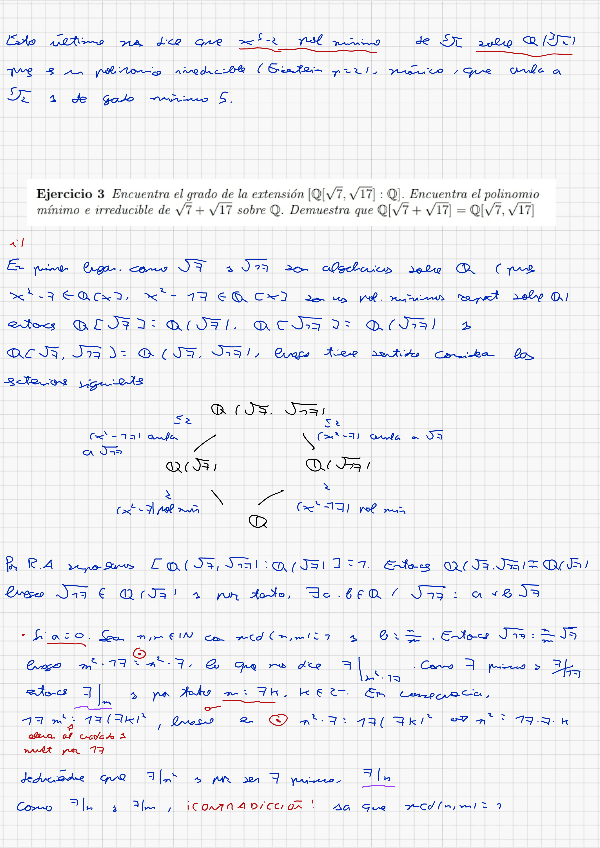 Esto último nos dice que x⁵-2 pol mínimo de ⁵√2 sobre Q(³√2)
pues es un polinomio irreducible (Eisenstein p=2), mónico, que anula a
⁵√2 y de grado mínimo 5.
Ejercicio 3 Encuentra el grado de la extensión [ℚ[√7, √17] : ℚ]. Encuentra el polinomio
mínimo e irreducible de √7 + √17 sobre ℚ. Demuestra que ℚ[√7 + √17] = ℚ[√7, √17]
i)
En primer lugar, como √7 y √17 son algebraicos sobre ℚ (pues
x²-7 ∈ ℚ[x], x²-17 ∈ ℚ[x] son sus pol. mínimos respect sobre ℚ)
entonces ℚ[√7] = ℚ(√7), ℚ[√17] = ℚ(√17) y
ℚ[√7, √17] = ℚ(√7, √17), luego tiene sentido considerar las
extensiones siguientes
ℚ(√7, √17)
≤2 ≤2
(x²-17) anula a √17 (x²-7) anula a √7
ℚ(√7) ℚ(√17)
2 2
(x²-7) pol min (x²-17) pol min
ℚ
Por R.A supongamos [ℚ(√7, √17) : ℚ(√7)] = 1. Entonces ℚ(√7, √17) = ℚ(√7)
luego √17 ∈ ℚ(√7) y por tanto, ∃ a, b ∈ ℚ / √17 = a + b√7
• Si a = 0. Sean n, m ∈ ℕ con mcd(n, m) = 1 y b = n/m. Entonces √17 = n/m √7
luego m²·17 = n²·7, lo que nos dice 7 | m²·17. Como 7 primo y 7∤17
entonces 7 | m y por tanto m = 7k, k ∈ ℤ. En consecuencia,
17 m² = 17(7k)², luego en n²·7 = 17(7k)² ⇔ n² = 17·7·k
eleva al cuadrado y
mult por 17
deduciéndose que 7 | n² y por ser 7 primo, 7 | n
Como 7 | n y 7 | m, ¡CONTRADICCIÓN! ya que mcd(n, m) = 1